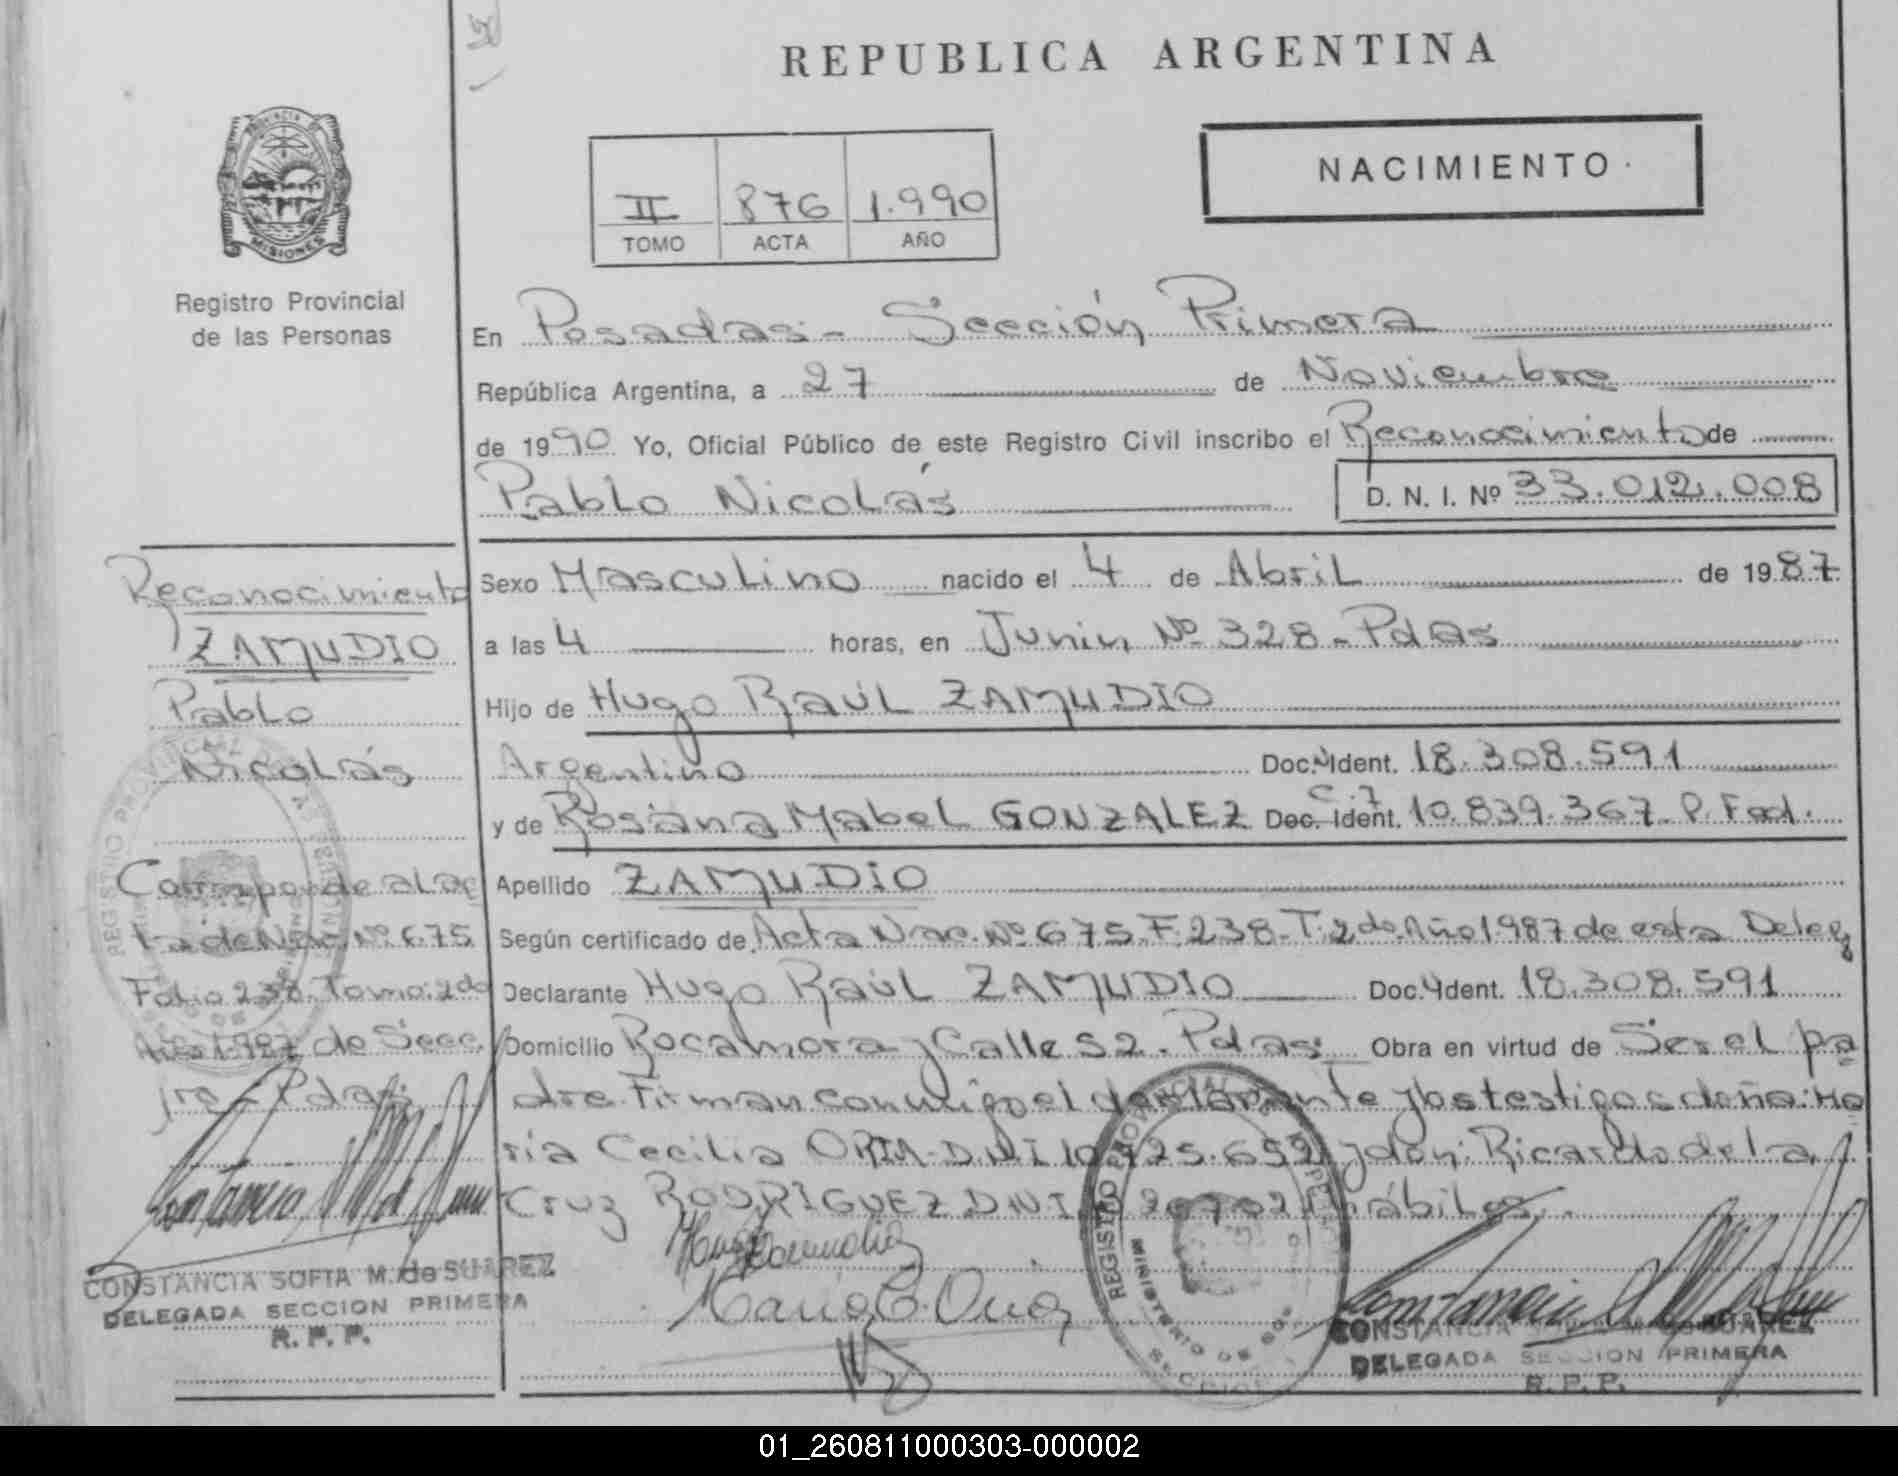 REPUBLICA ARGENTINA
PROVINCIA DE
MISIONES
Registro Provincial
de las Personas
NACIMIENTO
II 876 1.990
TOMO ACTA AÑO
En Posadas- Sección Primera
República Argentina, a 27 de Noviembre
de 1990 Yo, Oficial Público de este Registro Civil inscribo el Reconocimiento de
Pablo Nicolás D. N. I. Nº 33.012.008
Sexo Masculino nacido el 4 de Abril de 1987
a las 4 horas, en Junin Nº 328-Pdas
Hijo de Hugo Raúl ZAMUDIO
Argentino Doc. Ident. 18.308.591
y de Rosana Mabel GONZALEZ Doc. Ident. 10.839.367. P. Fed.
Apellido ZAMUDIO
Según certificado de Acta Nac. Nº 675 F. 238-T. 2do. Año 1987 de esta Deleg
Declarante Hugo Raúl ZAMUDIO Doc. Ident. 18.308.591
Domicilio Rocamora y Calle 52. Pdas. Obra en virtud de Ser el pa
dre. Firman conmigo el declarante y los testigos doña: Ma
ría Cecilia ORIA-D.N.I 10.925.652 y don: Ricardo de la
Cruz RODRIGUEZ D.N.I. hábiles.
Reconocimiento
ZAMUDIO
Pablo
Nicolás
Corresponde al ac
ta de Nac. Nº 675
Folio 238. Tomo: 2do
Año 1987 de Secc.
1ra - Pdas
CONSTANCIA SOFIA M. de SUAREZ
DELEGADA SECCION PRIMERA
R. P. P.
CONSTANCIA SOFIA M. de SUAREZ
DELEGADA SECCION PRIMERA
R. P. P.
01_260811000303-000002